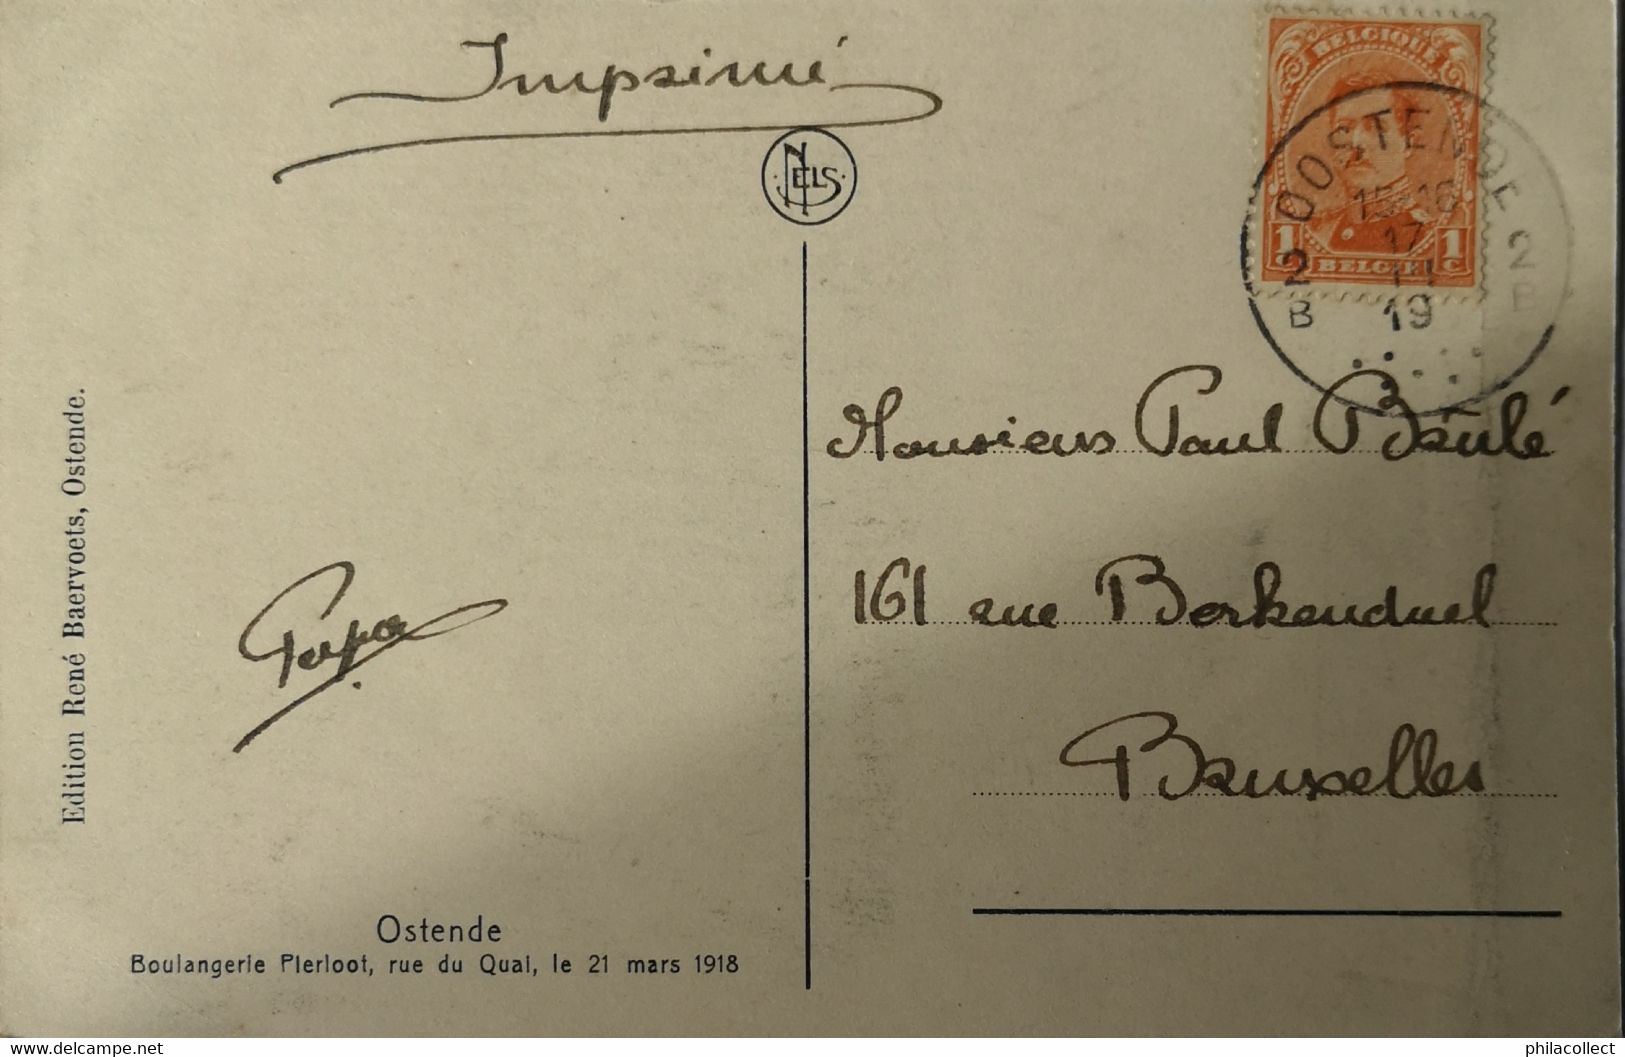 Imprimé
NELS
BELGIQUE
1 1
C C
BELGIË
OOSTENDE
15-16
17
III
19
2 2
B B
Monsieur Paul Brulé
161 rue Berkendael
Bruxelles
Edition René Baervoets, Ostende.
Papa
Ostende
Boulangerie Pierloot, rue du Quai, le 21 mars 1918
philacollect
delcampe.net